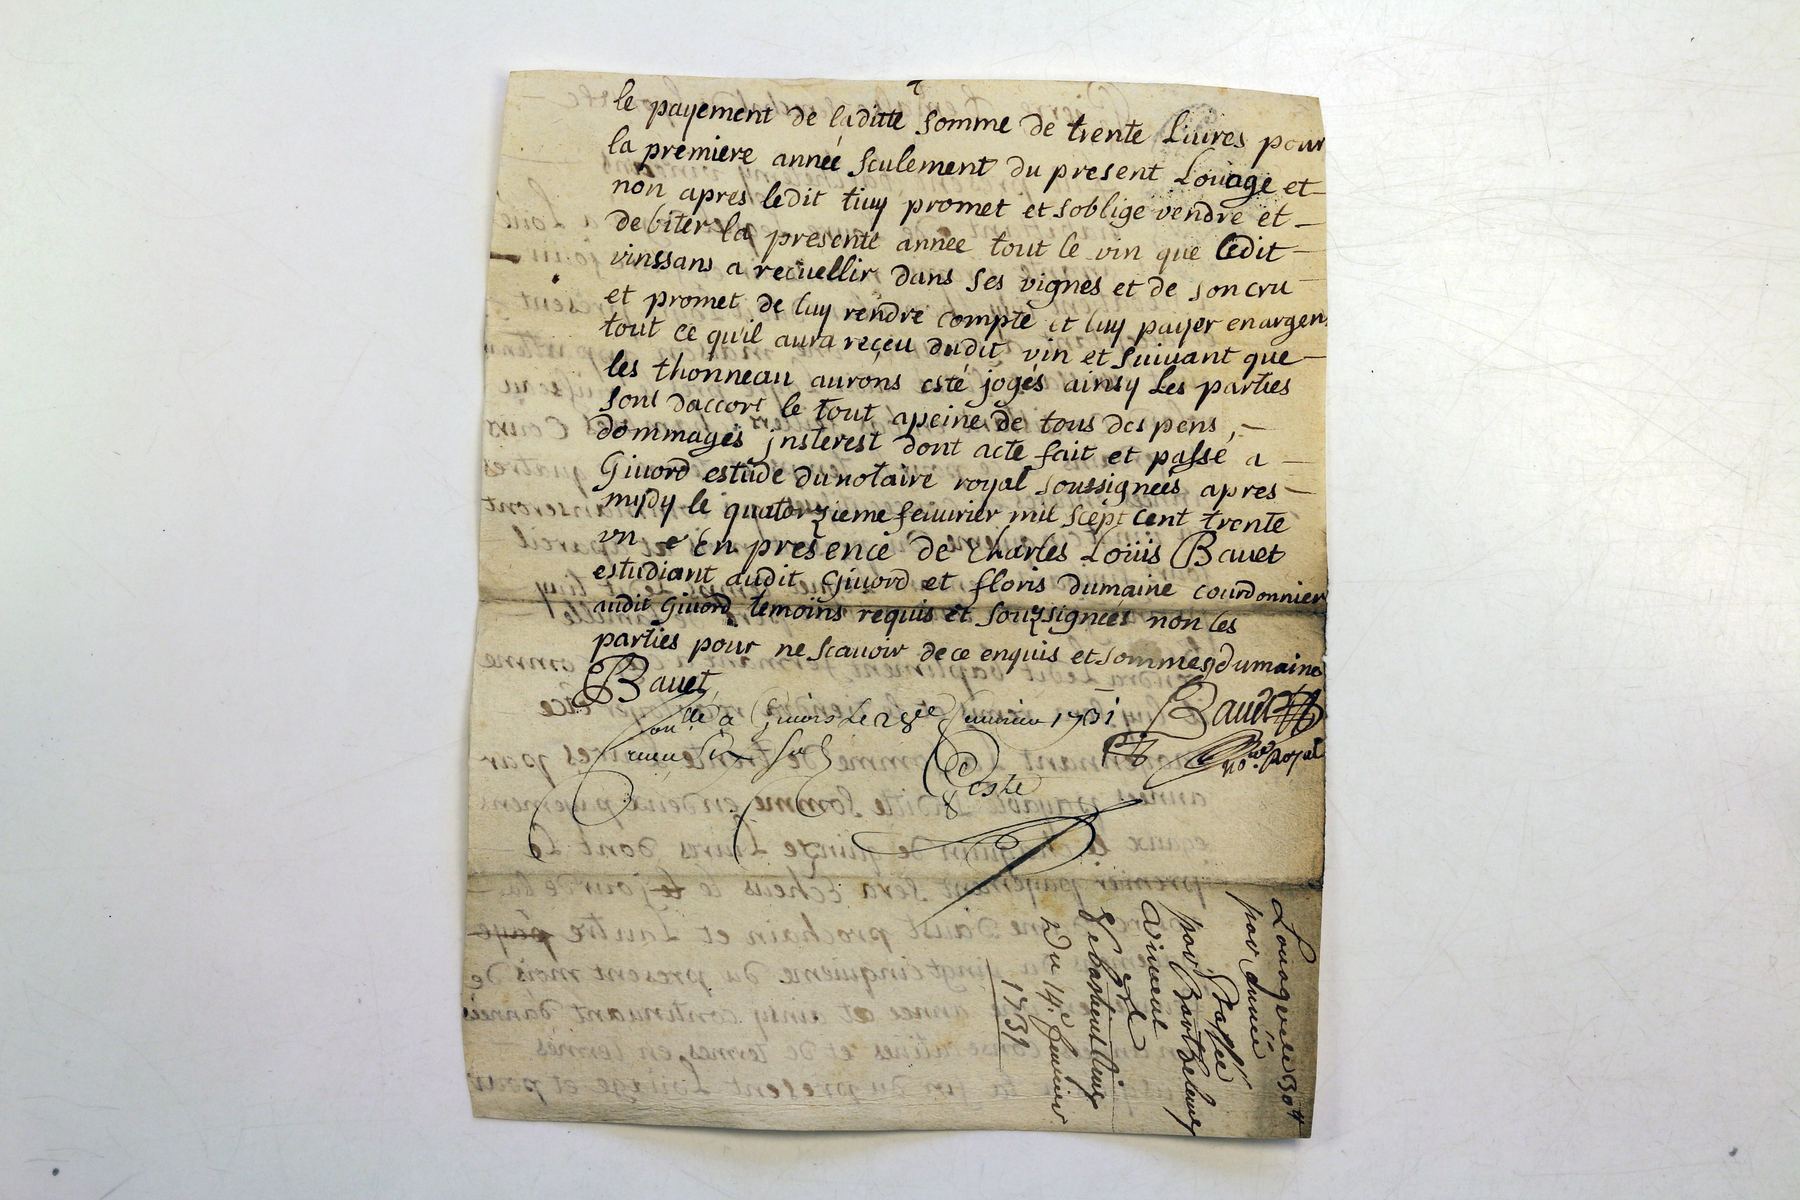 le payement de laditte somme de trente Liures pour
la premiere année seulement du present Loüage et
non apres ledit tiuy promet et soblige vendre et
debiter la presente annee tout le vin que ledit
vinssans a recuellir dans ses vignes et de son cru
et promet de luy rendre compte et luy payer enargen
tout ce quil aura reçeu dudit vin et suiuant que
les thonneau aurons esté jogés ainsy Les parties
sont daccort le tout apeine de tous despens,
dommages jnsterest dont acte fait et passé a
Giuord estude dunotaire royal soussignees apres
mydy le quatorzieme feuurier mil scept cent trente
vn en presence de Charles Loüis Bauet
estudiant audit Giuord et floris dumaine courdonnier
audit Giuord temoins requis et souzsignees non les
parties pour ne scauoir dece enquis et sommes dumaine
Bauet
Bauet
à Giuors Le 28ee feurier 1731
no.re Royal
Coste
Louage de 30tt
par année
Passée
par Barthelemy
Vincent
a
Sebastien tiuy
Du 14.e feurier
1731